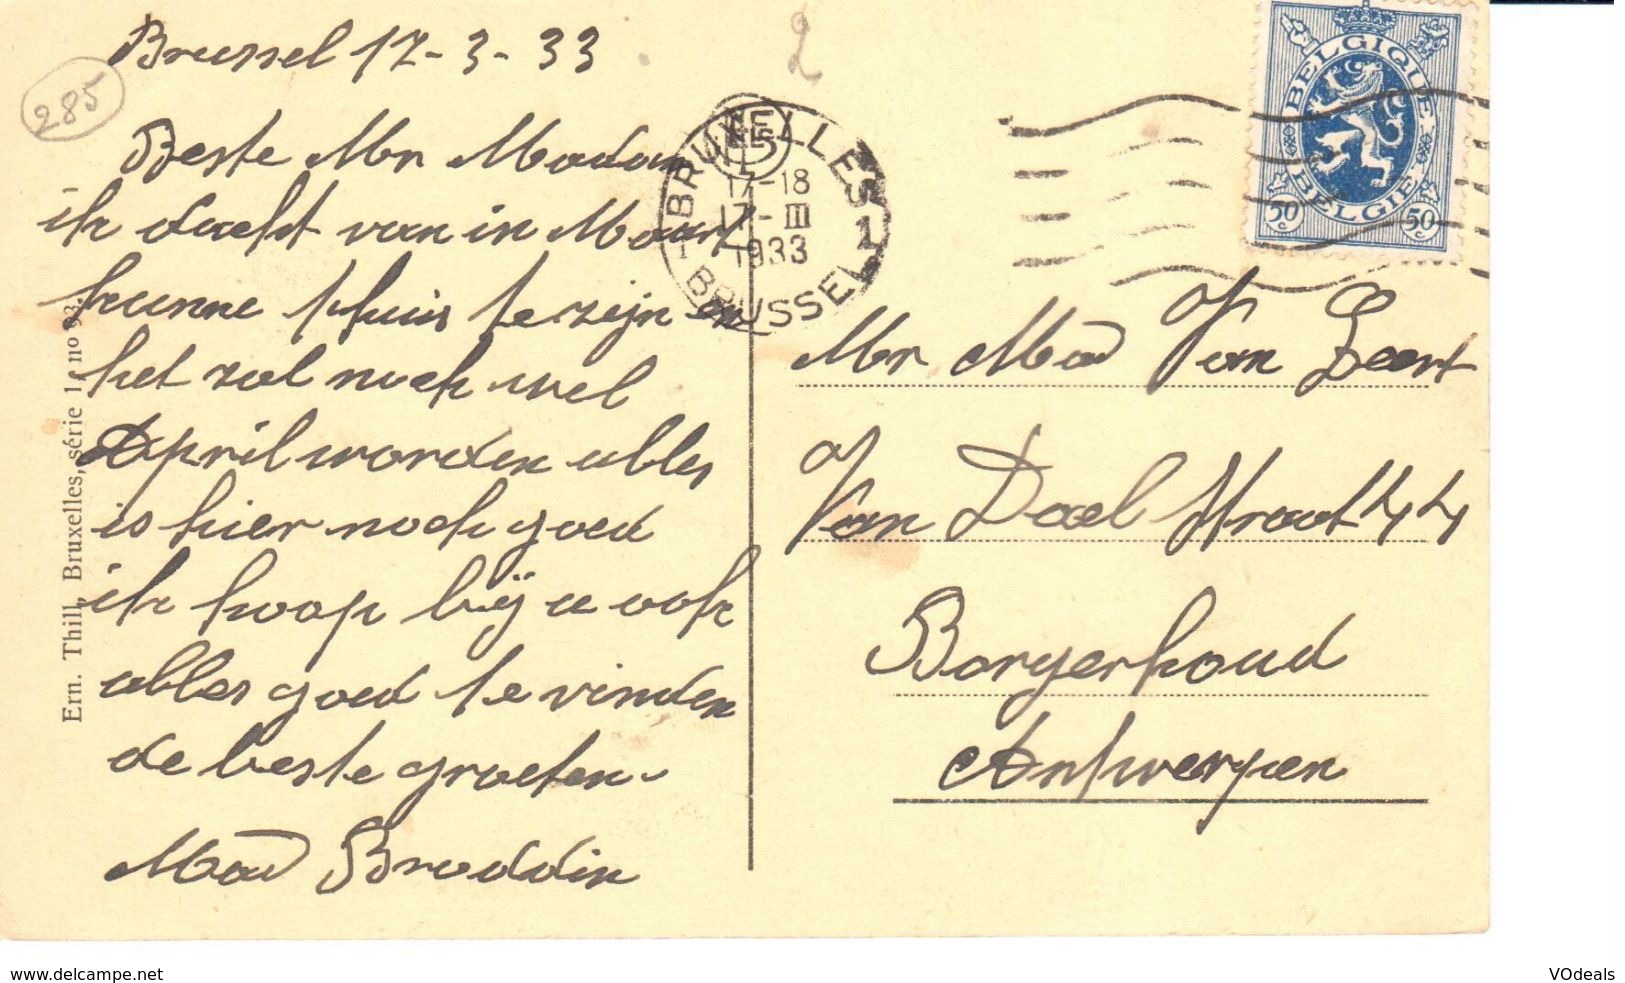 Brussel 17-3-33
285
2
Beste Mr Madam
ik dacht van in Maart
kunne thuis te zijn en
het zal noch wel
April worden alles
is hier noch goed
ik hoop bij u ook
alles goed te vinden
de beste groeten
Mad Broddin
Ern. Thill, Bruxelles, série 1, no 93.
BRUXELLES 1
17-18
17-III
1933
1 BRUSSEL
BELGIQUE
BELGIE
50 c
50 c
Mr Mad Van Geert
Van Dael Straat 44
Borgerhoud
Antwerpen
www.delcampe.net
VOdeals